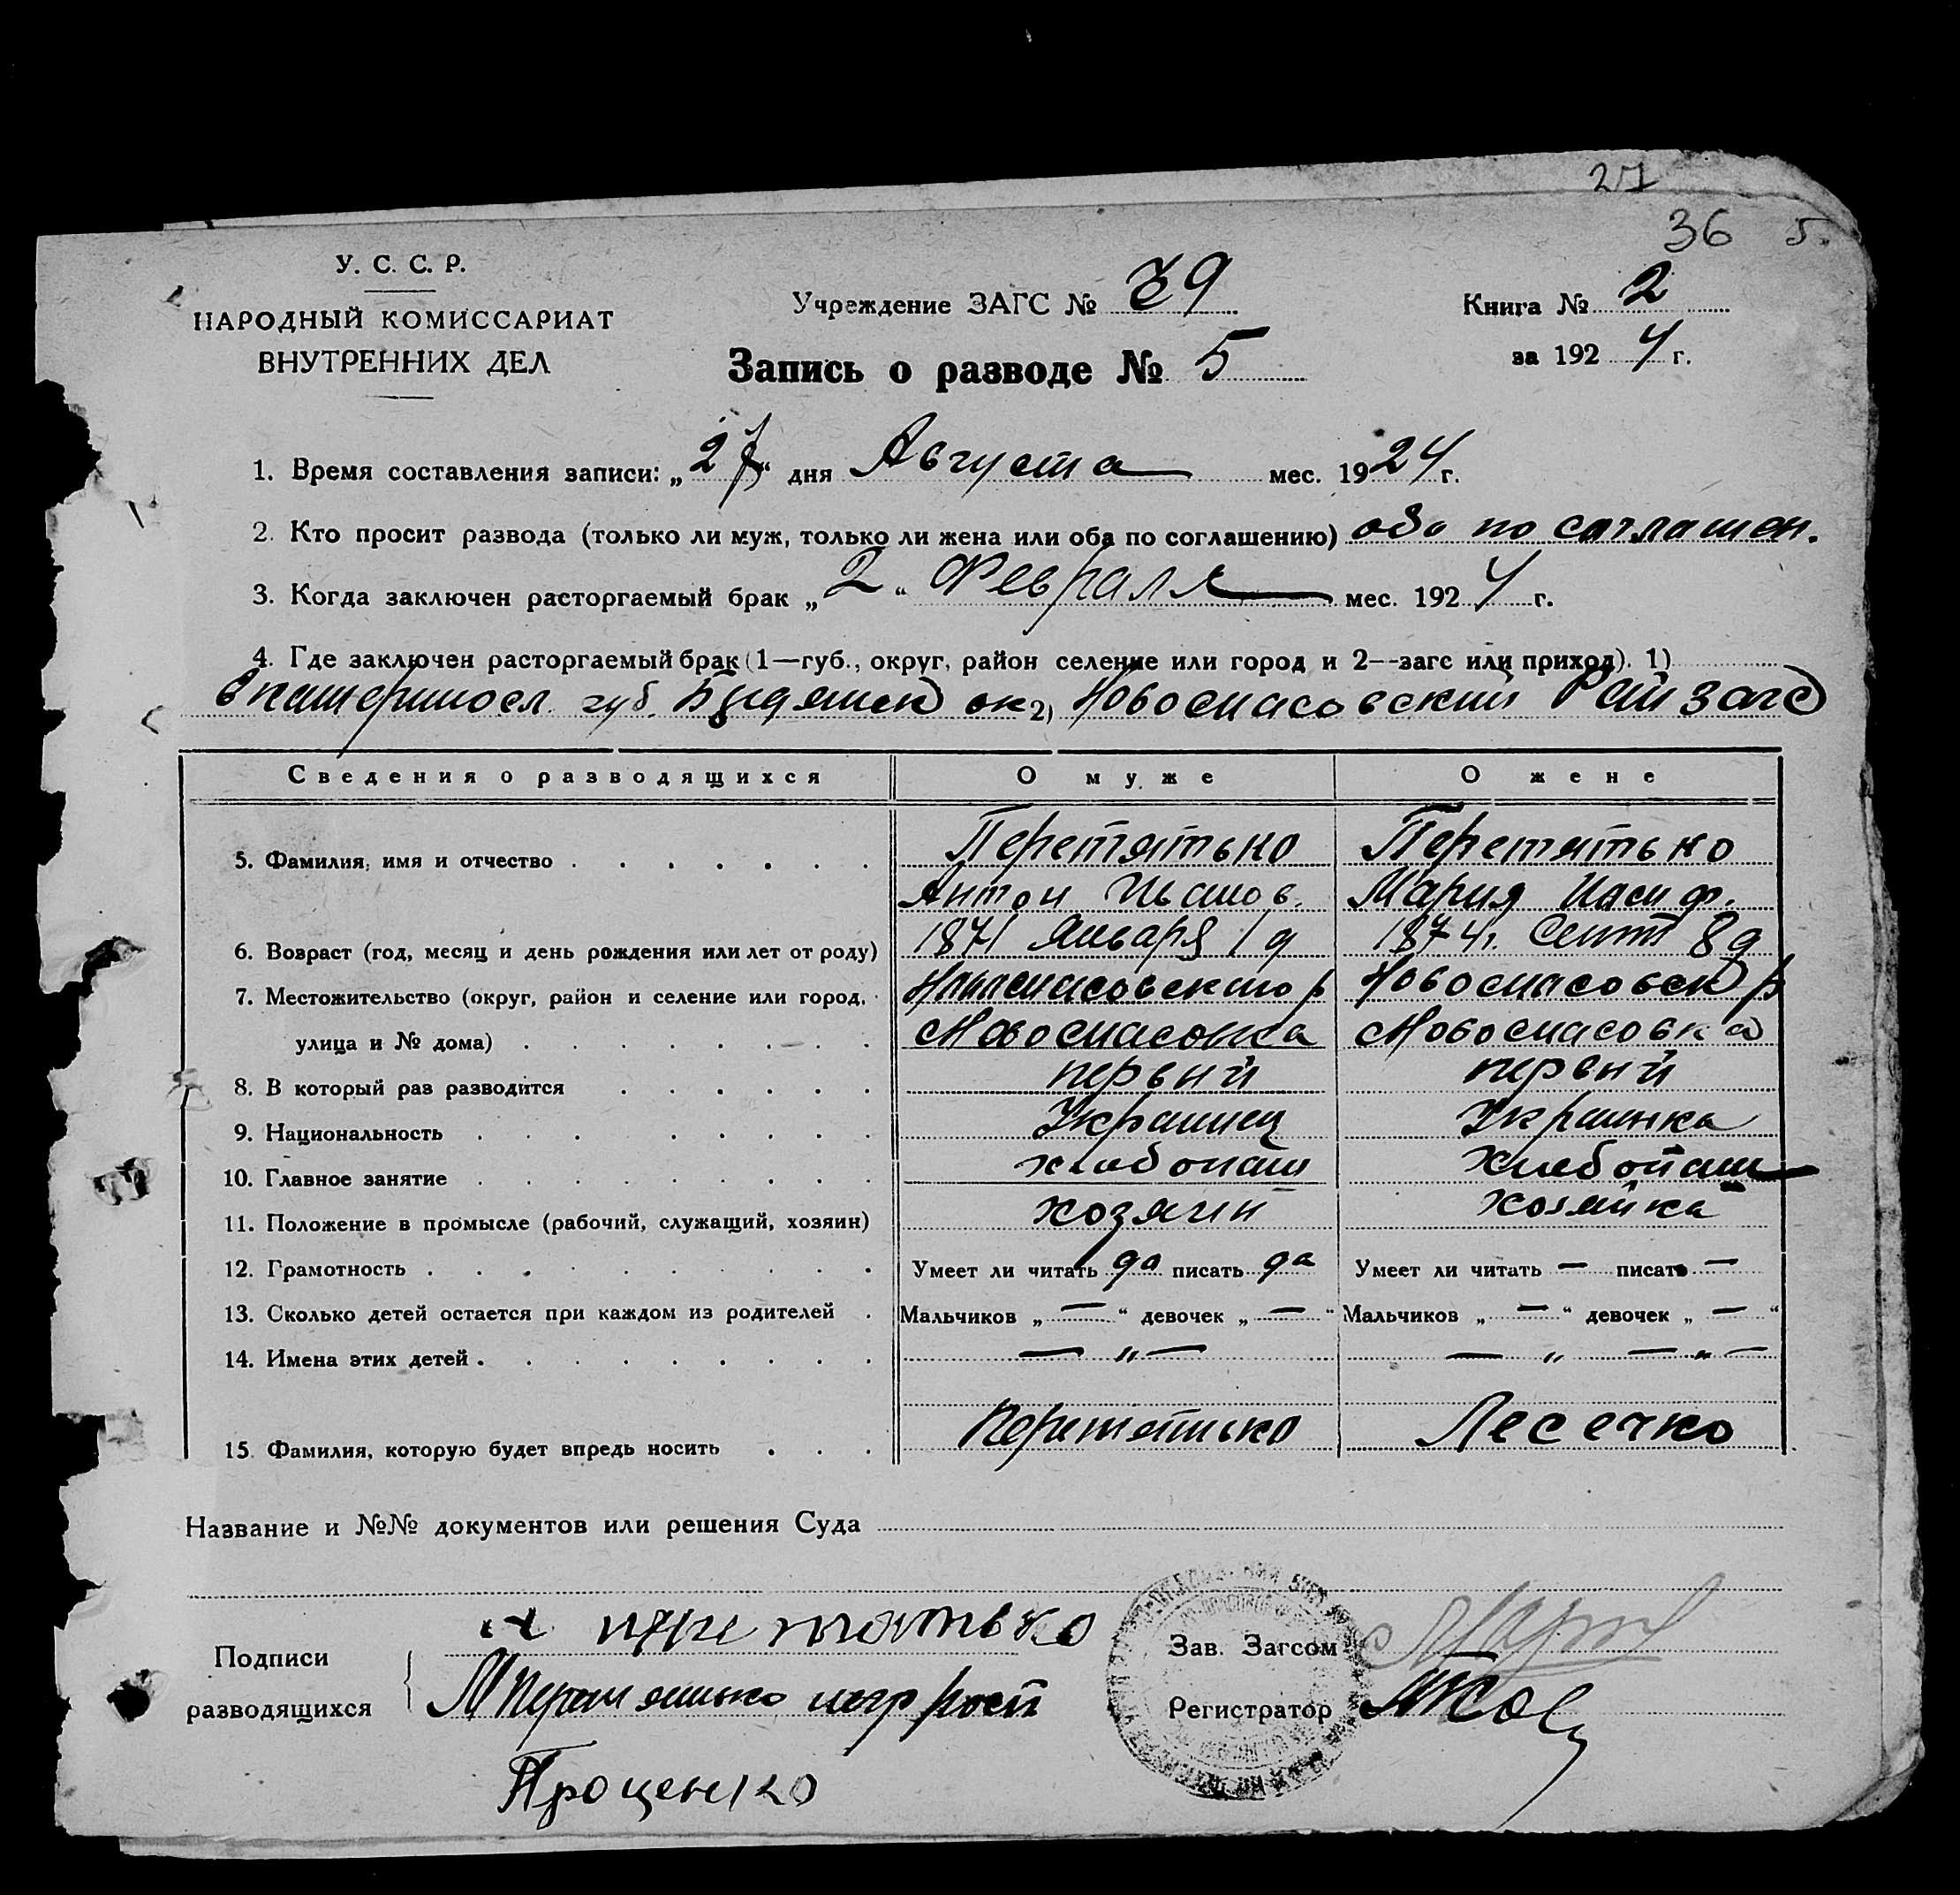 27
36 5.
У. С. С. Р.
НАРОДНЫЙ КОМИССАРИАТ
ВНУТРЕННИХ ДЕЛ
Учреждение ЗАГС № 39
Книга № 2
за 1924 г.
Запись о разводе № 5
1. Время составления записи: „27“ дня Августа мес. 1924 г.
2. Кто просит развода (только ли муж, только ли жена или оба по соглашению) оба по соглашен.
3. Когда заключен расторгаемый брак „2“ Февраля мес. 1924 г.
4. Где заключен расторгаемый брак (1—губ., округ, район селение или город и 2—загс или приход). 1)
Екатеринносл. губ. Бердянск ок 2) Новоспасовский Райзагс
Сведения о разводящихся О муже О жене
5. Фамилия, имя и отчество Перетятько Перетятько
Антон Иванов. Мария Иосиф.
6. Возраст (год, месяц и день рождения или лет от роду) 1871 Января 1 д 1874 г. Сент 8 д
7. Местожительство (округ, район и селение или город, Новоспасовского р Новоспасовск р
улица и № дома) с Новоспасовка с Новоспасовка
8. В который раз разводится первый первый
9. Национальность Украинец Украинка
10. Главное занятие хлебопаш хлебопаш
11. Положение в промысле (рабочий, служащий, хозяин) хозяин хозяйка
12. Грамотность Умеет ли читать да писать да Умеет ли читать — писать —
13. Сколько детей остается при каждом из родителей Мальчиков „—“ девочек „—“ Мальчиков „—“ девочек „—“
14. Имена этих детей — „ — — „ — „ —
15. Фамилия, которую будет впредь носить Перетятько Лесечко
Название и №№ документов или решения Суда
Подписи
разводящихся
А перетятько
М Перетятько негр рост
Проценко
Зав. Загсом
Регистратор